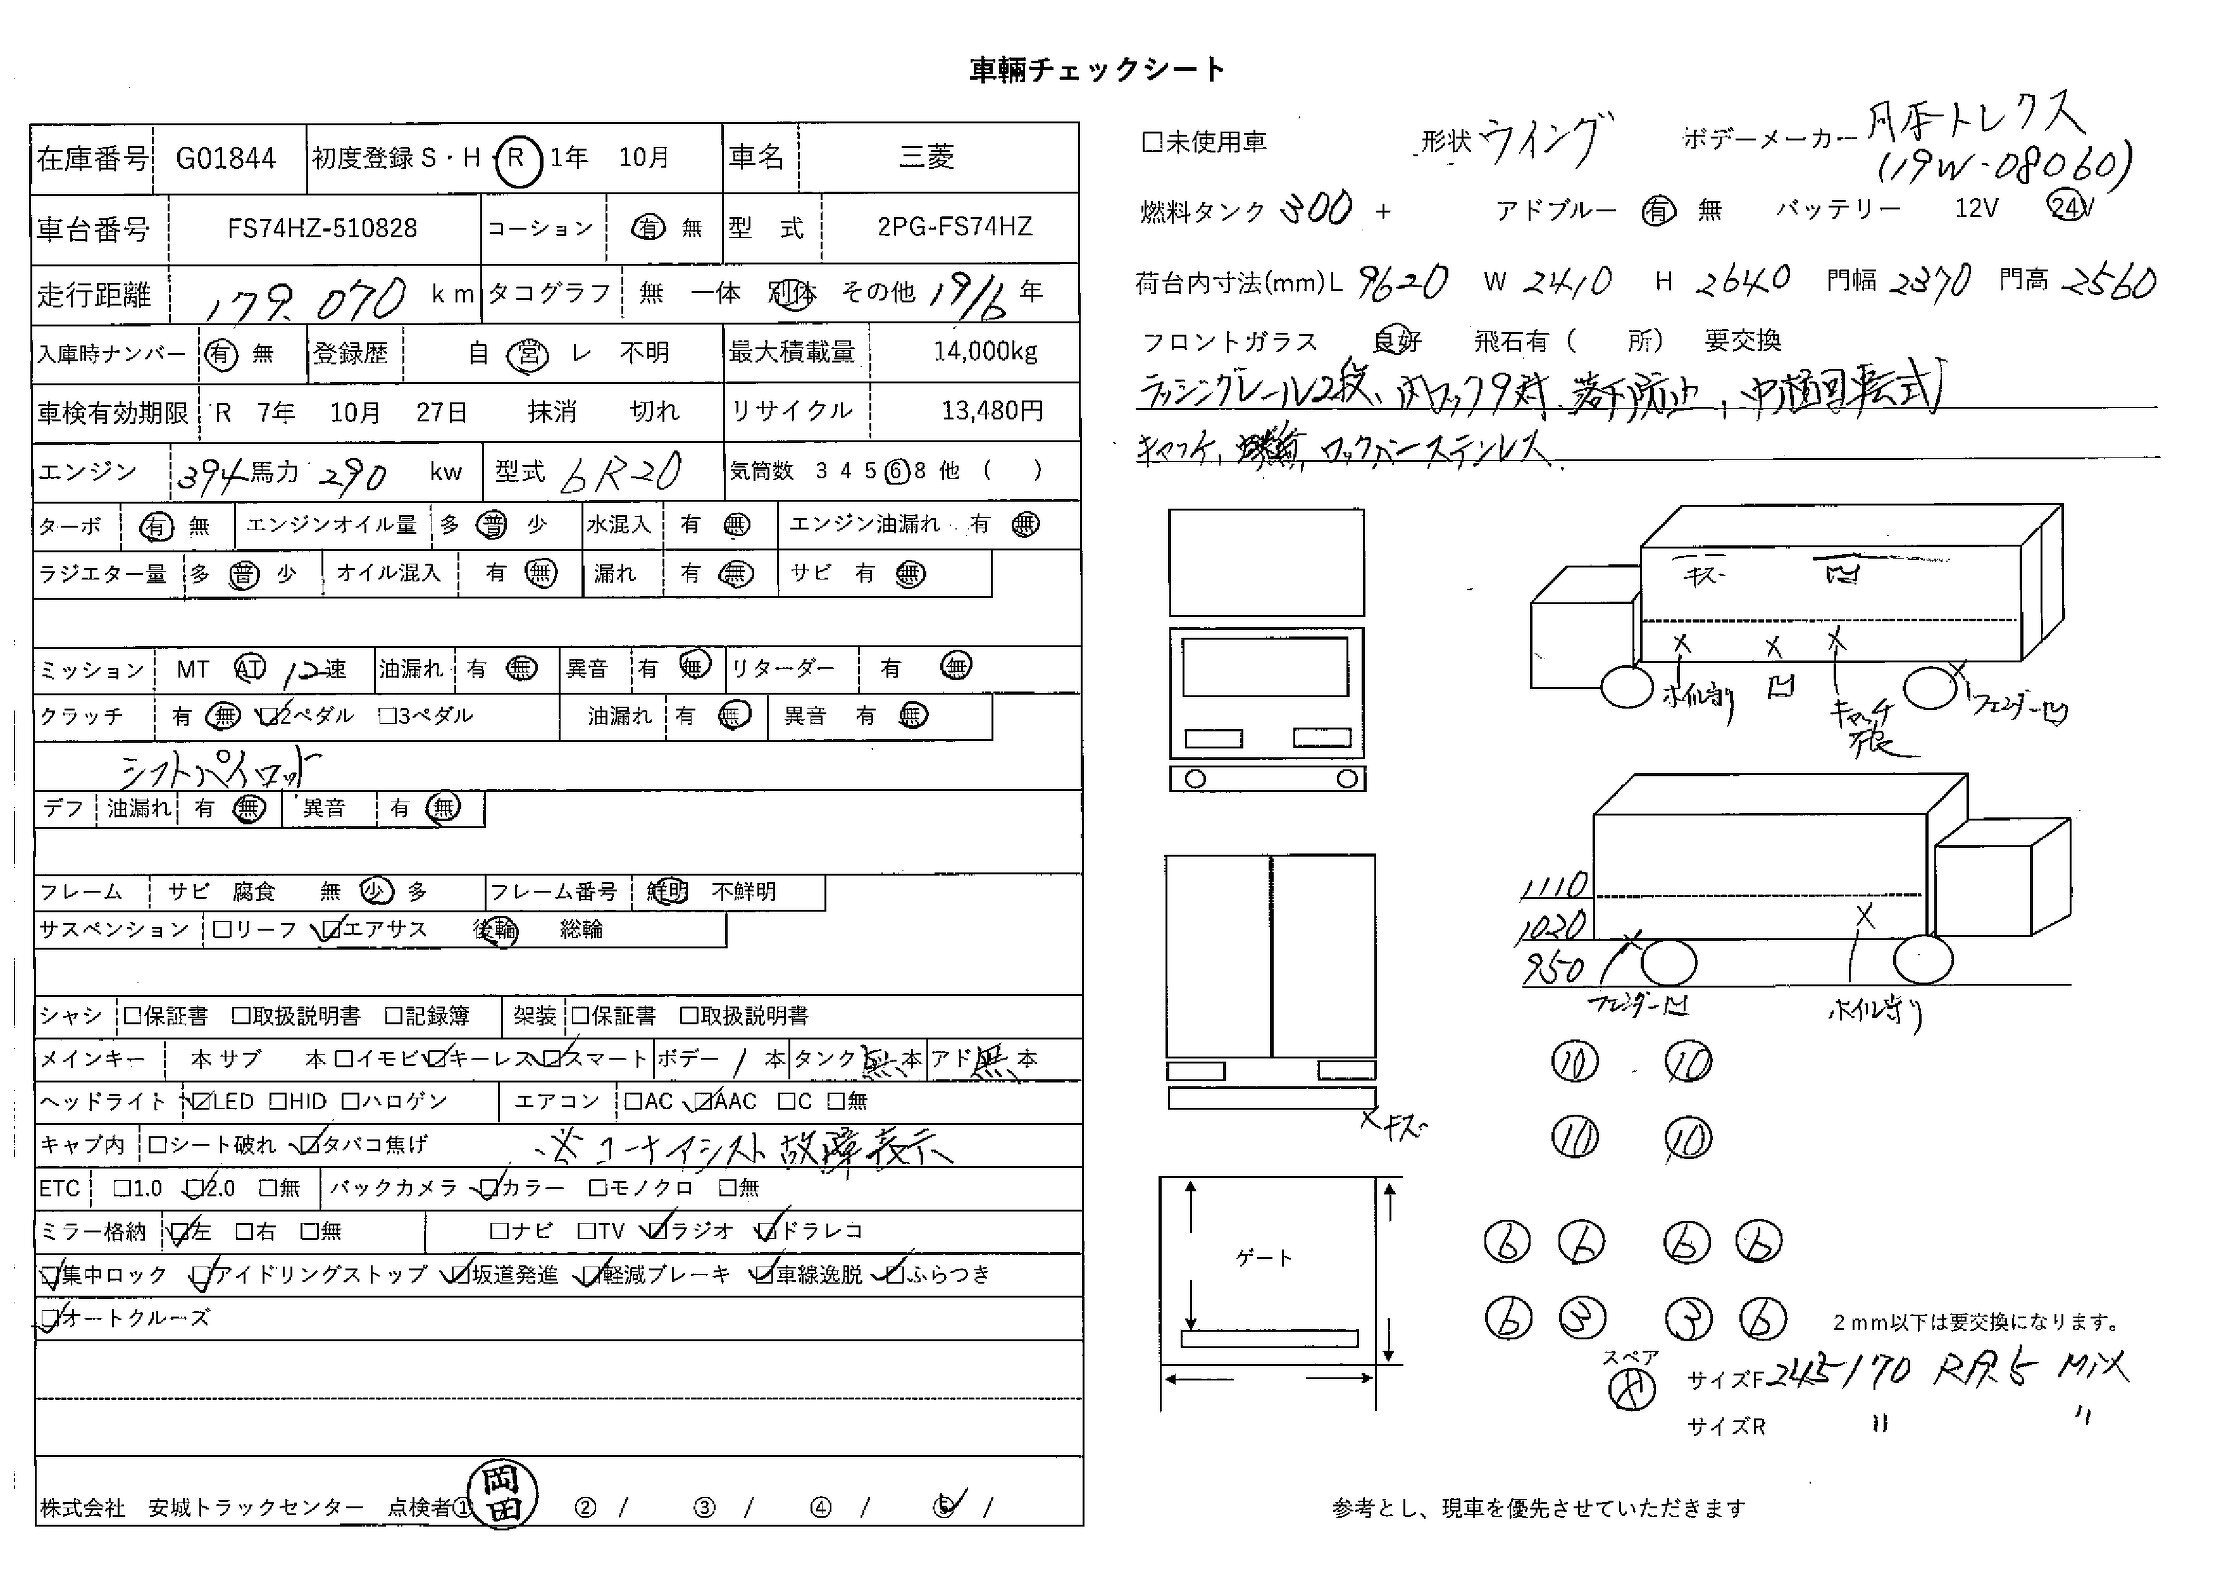 車輛チェックシート
在庫番号 G01844 初度登録 S・H・R 1年 10月 車名 三菱
車台番号 FS74HZ-510828 コーション 有 無 型 式 2PG-FS74HZ
走行距離 179,070 km タコグラフ 無 一体 別体 その他 19/6 年
入庫時ナンバー 有 無 登録歴 自 営 レ 不明 最大積載量 14,000kg
車検有効期限 R 7年 10月 27日 抹消 切れ リサイクル 13,480円
エンジン 394 馬力 290 kw 型式 6R20 気筒数 3 4 5 6 8 他 ( )
ターボ 有 無 エンジンオイル量 多 普 少 水混入 有 無 エンジン油漏れ 有 無
ラジエター量 多 普 少 オイル混入 有 無 漏れ 有 無 サビ 有 無
ミッション MT AT 12速 油漏れ 有 無 異音 有 無 リターダー 有 無
クラッチ 有 無 ☑2ペダル □3ペダル 油漏れ 有 無 異音 有 無
シフトパイロット
デフ 油漏れ 有 無 異音 有 無
フレーム サビ 腐食 無 少 多 フレーム番号 鮮明 不鮮明
サスペンション □リーフ ☑エアサス 後輪 総輪
シャシ □保証書 □取扱説明書 □記録簿 架装 □保証書 □取扱説明書
メインキー 本 サブ 本 □イモビ ☑キーレス ☑スマート ボデー 1 本 タンク 無 本 アド 無 本
ヘッドライト ☑LED □HID □ハロゲン エアコン □AC ☑AAC □C □無
キャブ内 □シート破れ ☑タバコ焦げ ※コーナアシスト故障表示
ETC □1.0 ☑2.0 □無 バックカメラ ☑カラー □モノクロ □無
ミラー格納 ☑左 □右 □無 □ナビ □TV ☑ラジオ ☑ドラレコ
☑集中ロック ☑アイドリングストップ ☑坂道発進 ☑軽減ブレーキ ☑車線逸脱 ☑ふらつき
☑オートクルーズ
株式会社 安城トラックセンター 点検者① 岡田 ② / ③ / ④ / ⑤ /
□未使用車 形状 ウイング ボデーメーカー 日本トレクス
(19W-08060)
燃料タンク 300 + アドブルー 有 無 バッテリー 12V 24V
荷台内寸法(mm) L 9620 W 2410 H 2640 門幅 2370 門高 2560
フロントガラス 良好 飛石有 ( 所) 要交換
ラッシングレール2段、内フック9対、落下防止、中柱回転式
キャッチ、ロックバーステンレス
キズ 凹
ホイル守り 凹 キャッチ フェンダー凹
1110
1020
950
フェンダー凹 ホイル守り
⑩ ⑩
⑩ ⑩
キズ
ゲート
⑥ ⑥ ⑥ ⑥
⑥ ③ ③ ⑥ 2mm以下は要交換になります。
スペア
サイズF 245/70 R19.5 MIX
サイズR 〃 〃
参考とし、現車を優先させていただきます